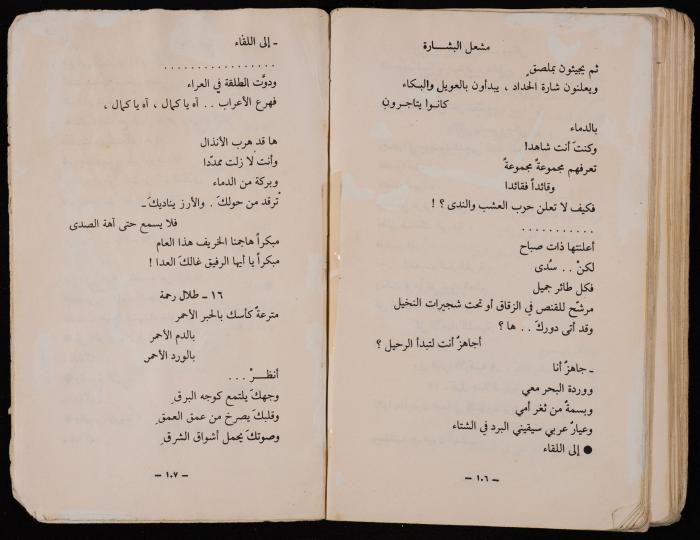 مشعل البشارة
ثم يجيئون بملصقٍ
ويعلنون شارة الحداد ، يبدأون بالعويل والبكاء
كانوا يتاجرون
بالدماء
وكنتَ أنت شاهدا
تعرفهم مجموعةً مجموعةً
وقائداً فقائدا
فكيف لا تعلن حرب العشب والندى ؟ !
. . . . . . . . . . .
أعلنتها ذات صباح
لكنْ . . سُدى
فكل طائر جميل
مرشّح للقنص في الزقاق أو تحت شجيرات النخيل
وقد أتى دوركَ . . ها ؟
أجاهزٌ أنت لتبدأ الرحيل ؟
ـ جاهزٌ أنا
ووردة البحر معي
وبسمةٌ من ثغر أمي
وعيارٌ عربي سيقيني البرد في الشتاء
● إلى اللقاء
ـ ١٠٦ ـ
ـ إلى اللقاء
. . . . . . . . . . . . . . . . .
ودوَّت الطلقة في العراء
فهرع الأعراب . . آه يا كمال ، آه يا كمال ،
ها قد هرب الأنذال
وأنت لا زلت ممدّدا
وبركة من الدماء
ترقد من حولكَ . والأرز يناديكَ ـ
فلا يسمع حتى آهة الصدى
مبكراً هاجمنا الخريف هذا العام
مبكراً يا أيها الرفيق غالكَ العدا !
١٦ ـ طلال رحمة
مترعةٌ كأسك بالحبر الأحمر
بالدم الأحمر
بالورد الأحمر
أنظـرْ . . .
وجهكَ يلتمع كوجه البرقِ
وقلبكَ يصرخ من عمق العمقِ
وصوتكَ يحمل أشواق الشرقِ
ـ ١٠٧ ـ